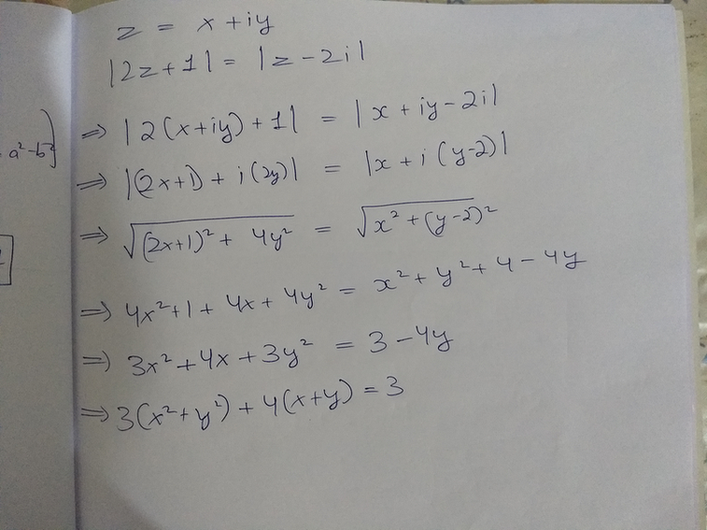 z = x + iy
|2z + 1| = |z - 2i|
⇒ |2(x+iy) + 1| = |x + iy - 2i|
a²-b²}
⇒ |(2x+1) + i(2y)| = |x + i(y-2)|
⇒ √((2x+1)² + 4y²) = √(x² + (y-2)²)
⇒ 4x² + 1 + 4x + 4y² = x² + y² + 4 - 4y
⇒ 3x² + 4x + 3y² = 3 - 4y
⇒ 3(x² + y²) + 4(x+y) = 3